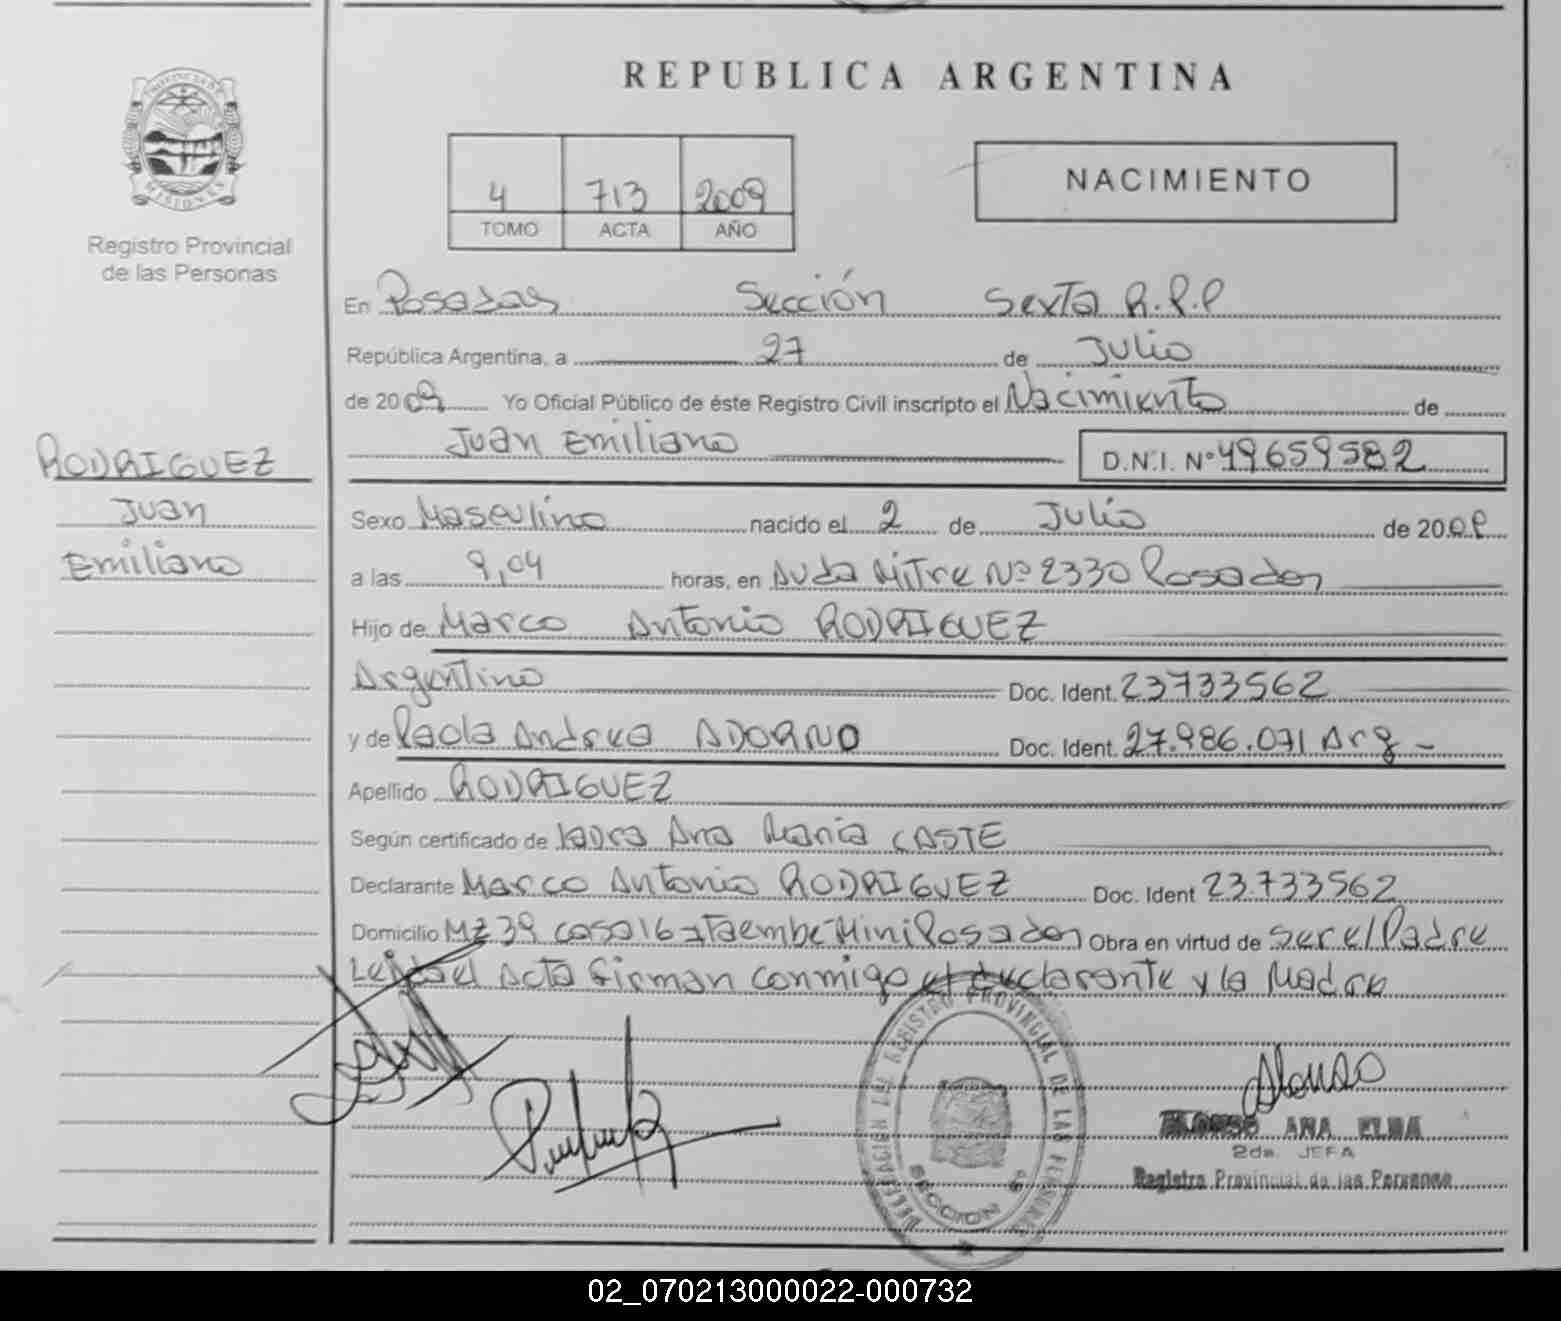 REPUBLICA ARGENTINA
PROVINCIA DE
MISIONES
Registro Provincial
de las Personas
4 713 2009
TOMO ACTA AÑO
NACIMIENTO
En Posadas Sección Sexta R.P.P
República Argentina, a 27 de Julio
de 2009 Yo Oficial Público de éste Registro Civil inscripto el Nacimiento de
Juan Emiliano D.N.I. Nº 49659582
RODRIGUEZ
Juan
Emiliano
Sexo Masculino nacido el 2 de Julio de 2009
a las 9,04 horas, en Avda Mitre Nº 2330 Posadas
Hijo de Marco Antonio RODRIGUEZ
Argentino Doc. Ident. 23733562
y de Paola Andrea ADORNO Doc. Ident. 27.986.071 Arg -
Apellido RODRIGUEZ
Según certificado de Laura Ana Maria CASTE
Declarante Marco Antonio RODRIGUEZ Doc. Ident 23.733562
Domicilio MZ 39 casa 16 Itaembe Mini Posadas Obra en virtud de ser el Padre
Leida el Acta firman conmigo el declarante y la Madre
DELEGACION DEL REGISTRO PROVINCIAL DE LAS PERSONAS
SECCION 6º
Alonso
ALONSO ANA ELBA
2da. JEFA
Registro Provincial de las Personas
02_070213000022-000732